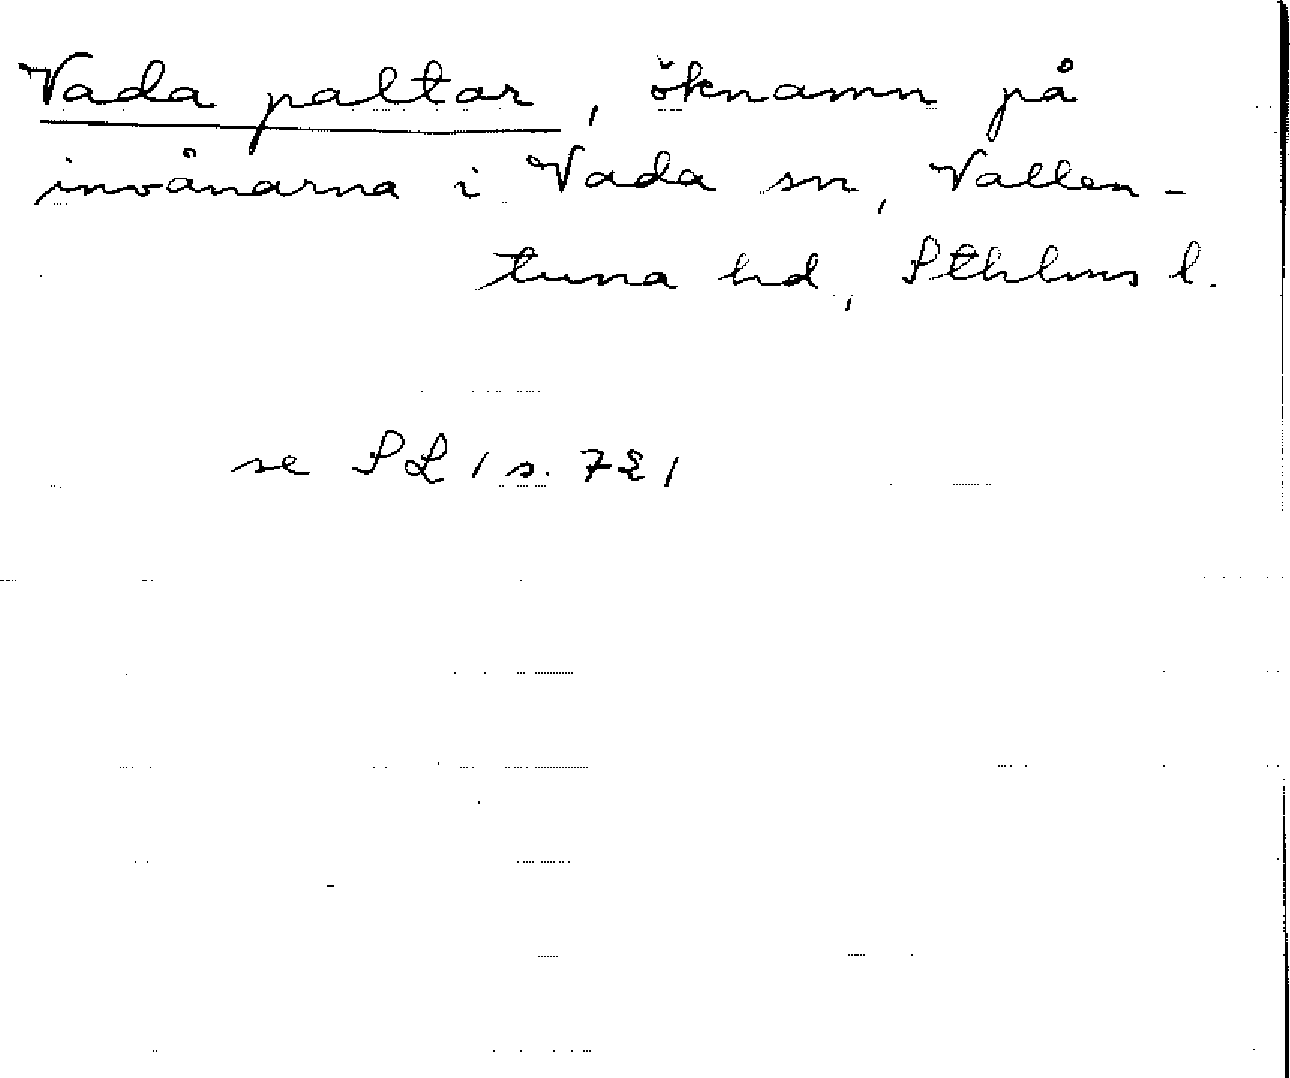 Vada paltar, öknamn på
invånarna i Vada sn, Vallen-
tuna hd, Sthlms l.
se SL 1 s. 721